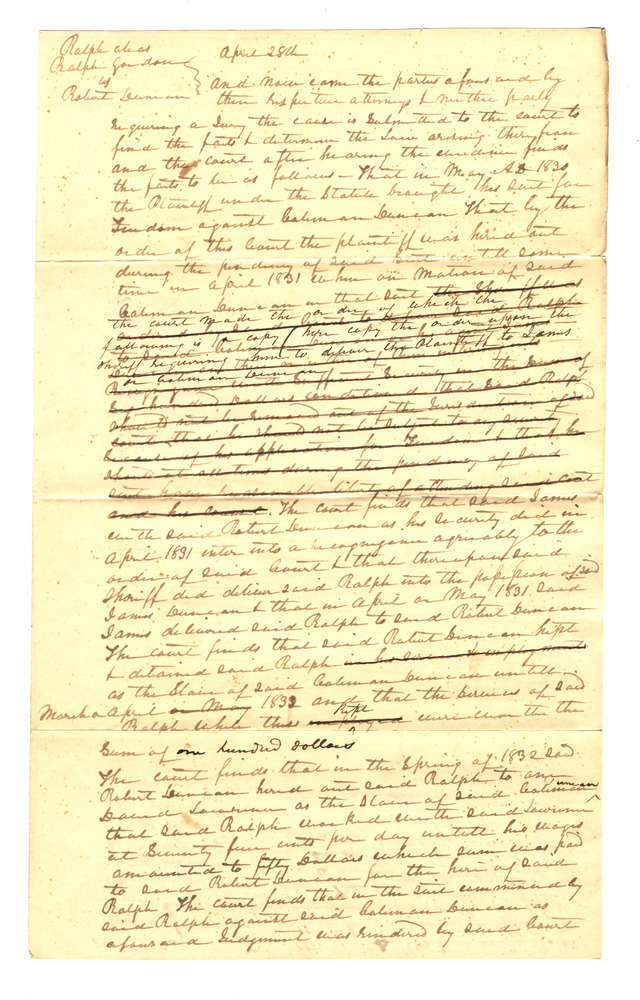 Ralph alias
Ralph Gordon
vs
Robert Duncan
April 28th
And now come the parties aforesaid by
their respective attorneys & neither party
requiring a Jury the cause is submitted to the court to
find the facts & determine the Law arising therefrom
and the court after hearing the evidence finds
the facts to be as follows – That in May AD 1830
the Plaintiff under the Statute brought his suit for
Freedom against Coleman Duncan That by the
order of this Court the plaintiff was hired out
during the pendency of said suit untill some
time in April 1831 when on Motion of said
Coleman Duncan in that suit the Sheriff was
the court made the order of which the
following is a copy (here copy the order upon the
Sheriff requiring him to deliver the Plaintiff to James
or Coleman Duncan
six hundred Dollars conditioned that said Ralph
should not be removed out of the Jurisdiction of said
court, that he should not be subject to any severity
because of his application for Freedom & that he
should at all times during the pendency of said
suit have reasonable liberty of attending said Court
and his counsel. The court finds that said James
with said Robert Duncan as his security did in
April 1831 enter into a recognizance agreeably to the
order of said Court & that thereupon said
Sheriff did deliver said Ralph into the possession of said
James Duncan & that in April or May 1831 said
James delivered said Ralph to said Robert Duncan
The court finds that said Robert Duncan kept
& detained said Ralph in his service & employment
as the Slave of said Coleman Duncan untill
March or April or May 1832 and that the services of said
Ralph while thus kept were worth the
Sum of one hundred dollars
The court finds that in the Spring of 1832 said
Robert Duncan hired out said Ralph to one
David Lawrence as the Slave of said Coleman Duncan
that said Ralph worked with said Lawrence
at Seventy five cents per day untill his wages
amounted to fifty Dollars which sum was paid
to said Robert Duncan for the hire of said
Ralph The court finds that in the suit commenced by
said Ralph against said Coleman Duncan as
aforesaid Judgment was rendered by said Court